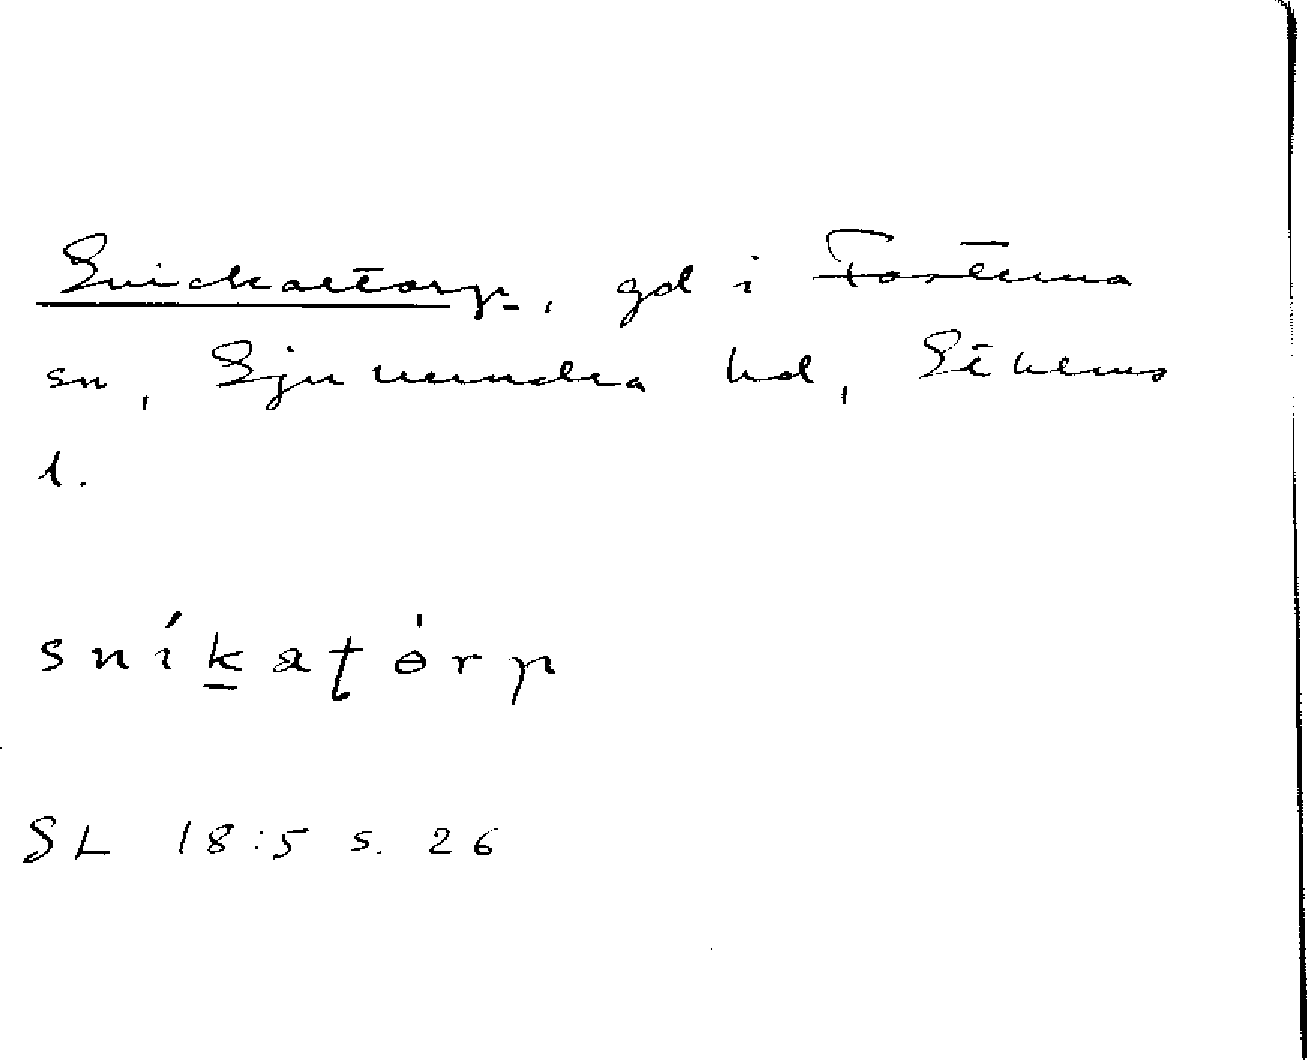 Snickartorp, gd i Fasterna
sn, Sjuhundra hd, Sthlms
l.
sníḵaʈө́rp
SL 18:5 s. 26